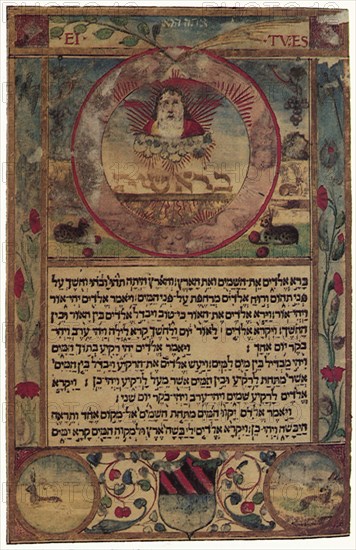 EI · TV·ES
בראשית
ברא אלדים את השמים ואת הארץ והארץ היתה תהו ובהו וחשך על
פני תהום ורוח אלדים מרחפת על פני המים ויאמר אלדים יהי אור
ויהי אור וירא אלדים את האור כי טוב ויבדל אלדים בין האור ובין
החשך ויקרא אלדים לאור יום ולחשך קרא לילה ויהי ערב ויהי
בקר יום אחד : ויאמר אלדים יהי רקיע בתוך המים
ויהי מבדיל בין מים למים ויעש אלדים את הרקיע ויבדל בין המים
אשר מתחת לרקיע ובין המים אשר מעל לרקיע ויהי כן : ויקרא
אלדים לרקיע שמים ויהי ערב ויהי בקר יום שני :
ויאמר אלדים יקוו המים מתחת השמים אל מקום אחד ותראה
היבשה ויהי כן ויקרא אלדים ליבשה ארץ ולמקוה המים קרא ימים